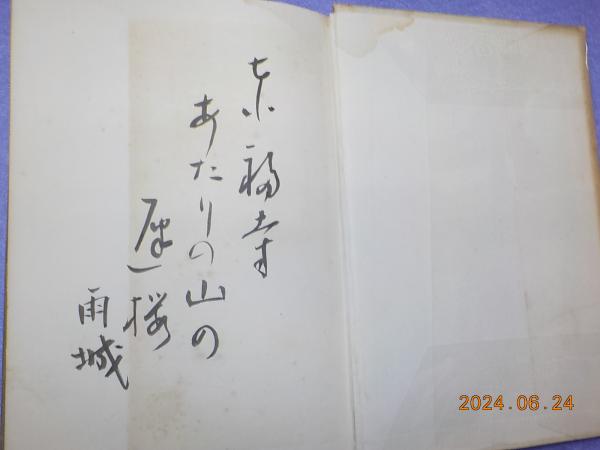 東福寺
あたりの山の
遅桜
雨城
2024.06.24